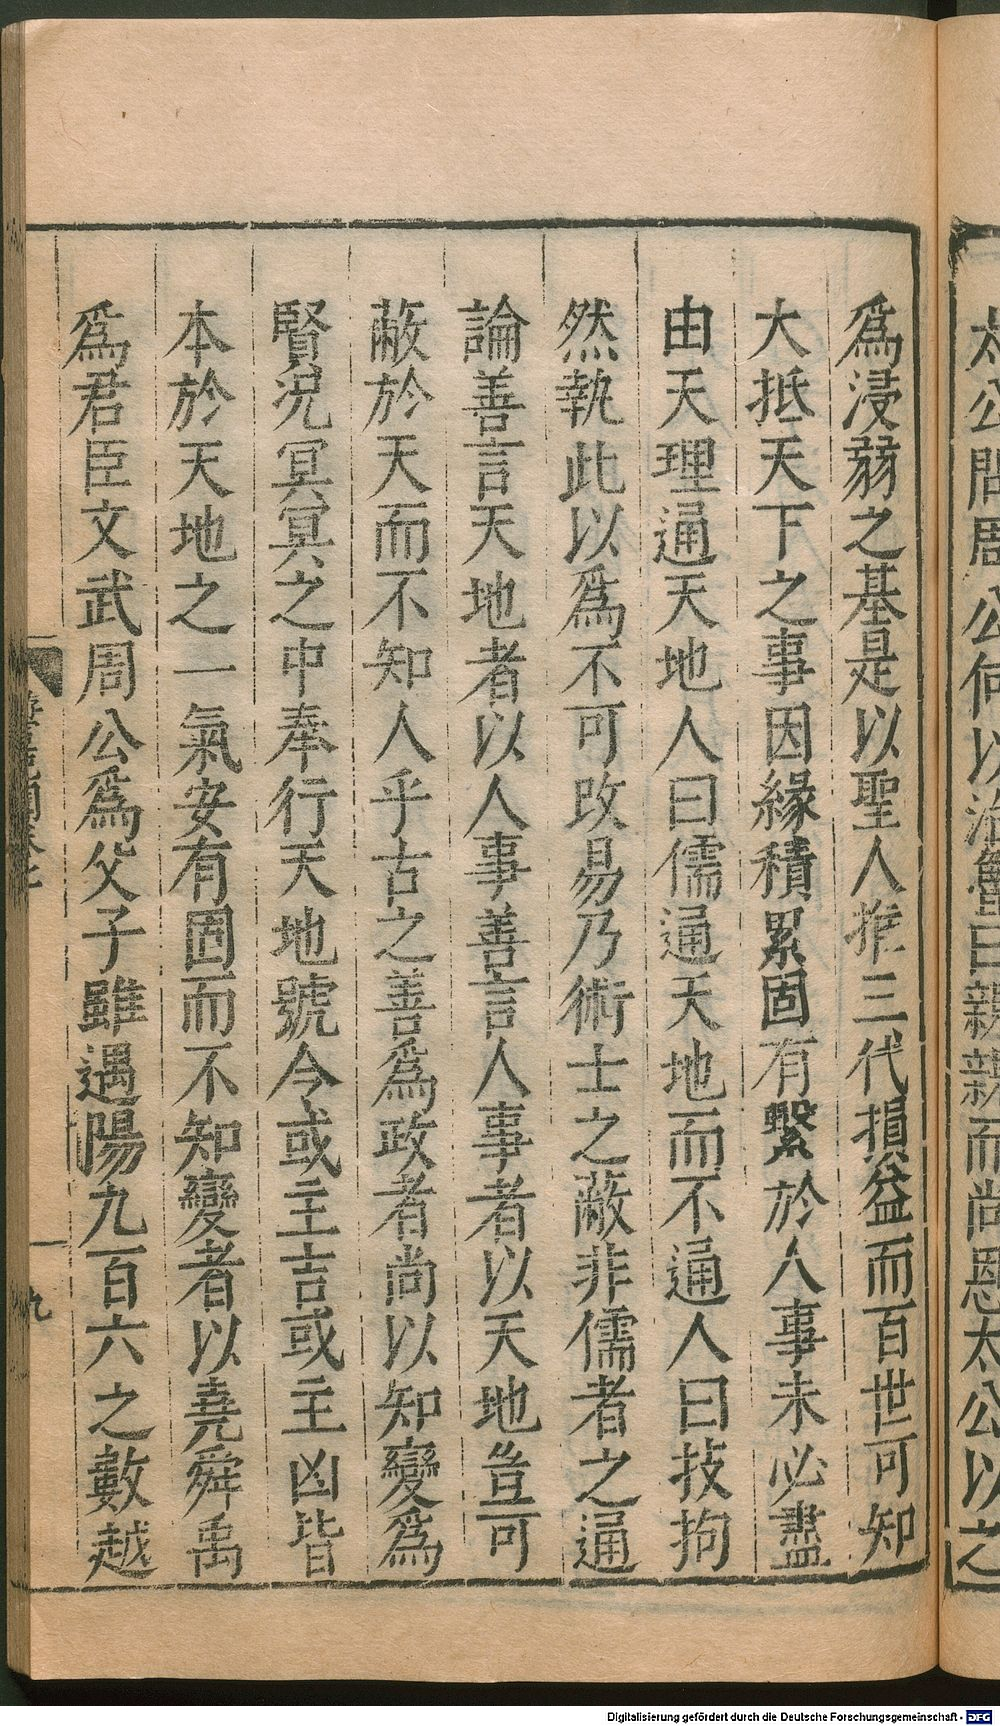 太公問周公何以治魯曰親親而尚恩太公以之
爲浸弱之基是以聖人推三代損益而百世可知
大抵天下之事因緣積累固有繫於人事未必盡
由天理通天地人曰儒通天地而不通人曰技拘
然執此以爲不可改易乃術士之蔽非儒者之通
論善言天地者以人事善言人事者以天地豈可
蔽於天而不知人乎古之善爲政者尚以知變爲
賢况冥冥之中奉行天地號令或主吉或主凶皆
本於天地之一氣安有固而不知變者以堯舜禹
爲君臣文武周公爲父子雖遇陽九百六之數越
九
Digitalisierung gefördert durch die Deutsche Forschungsgemeinschaft - DFG